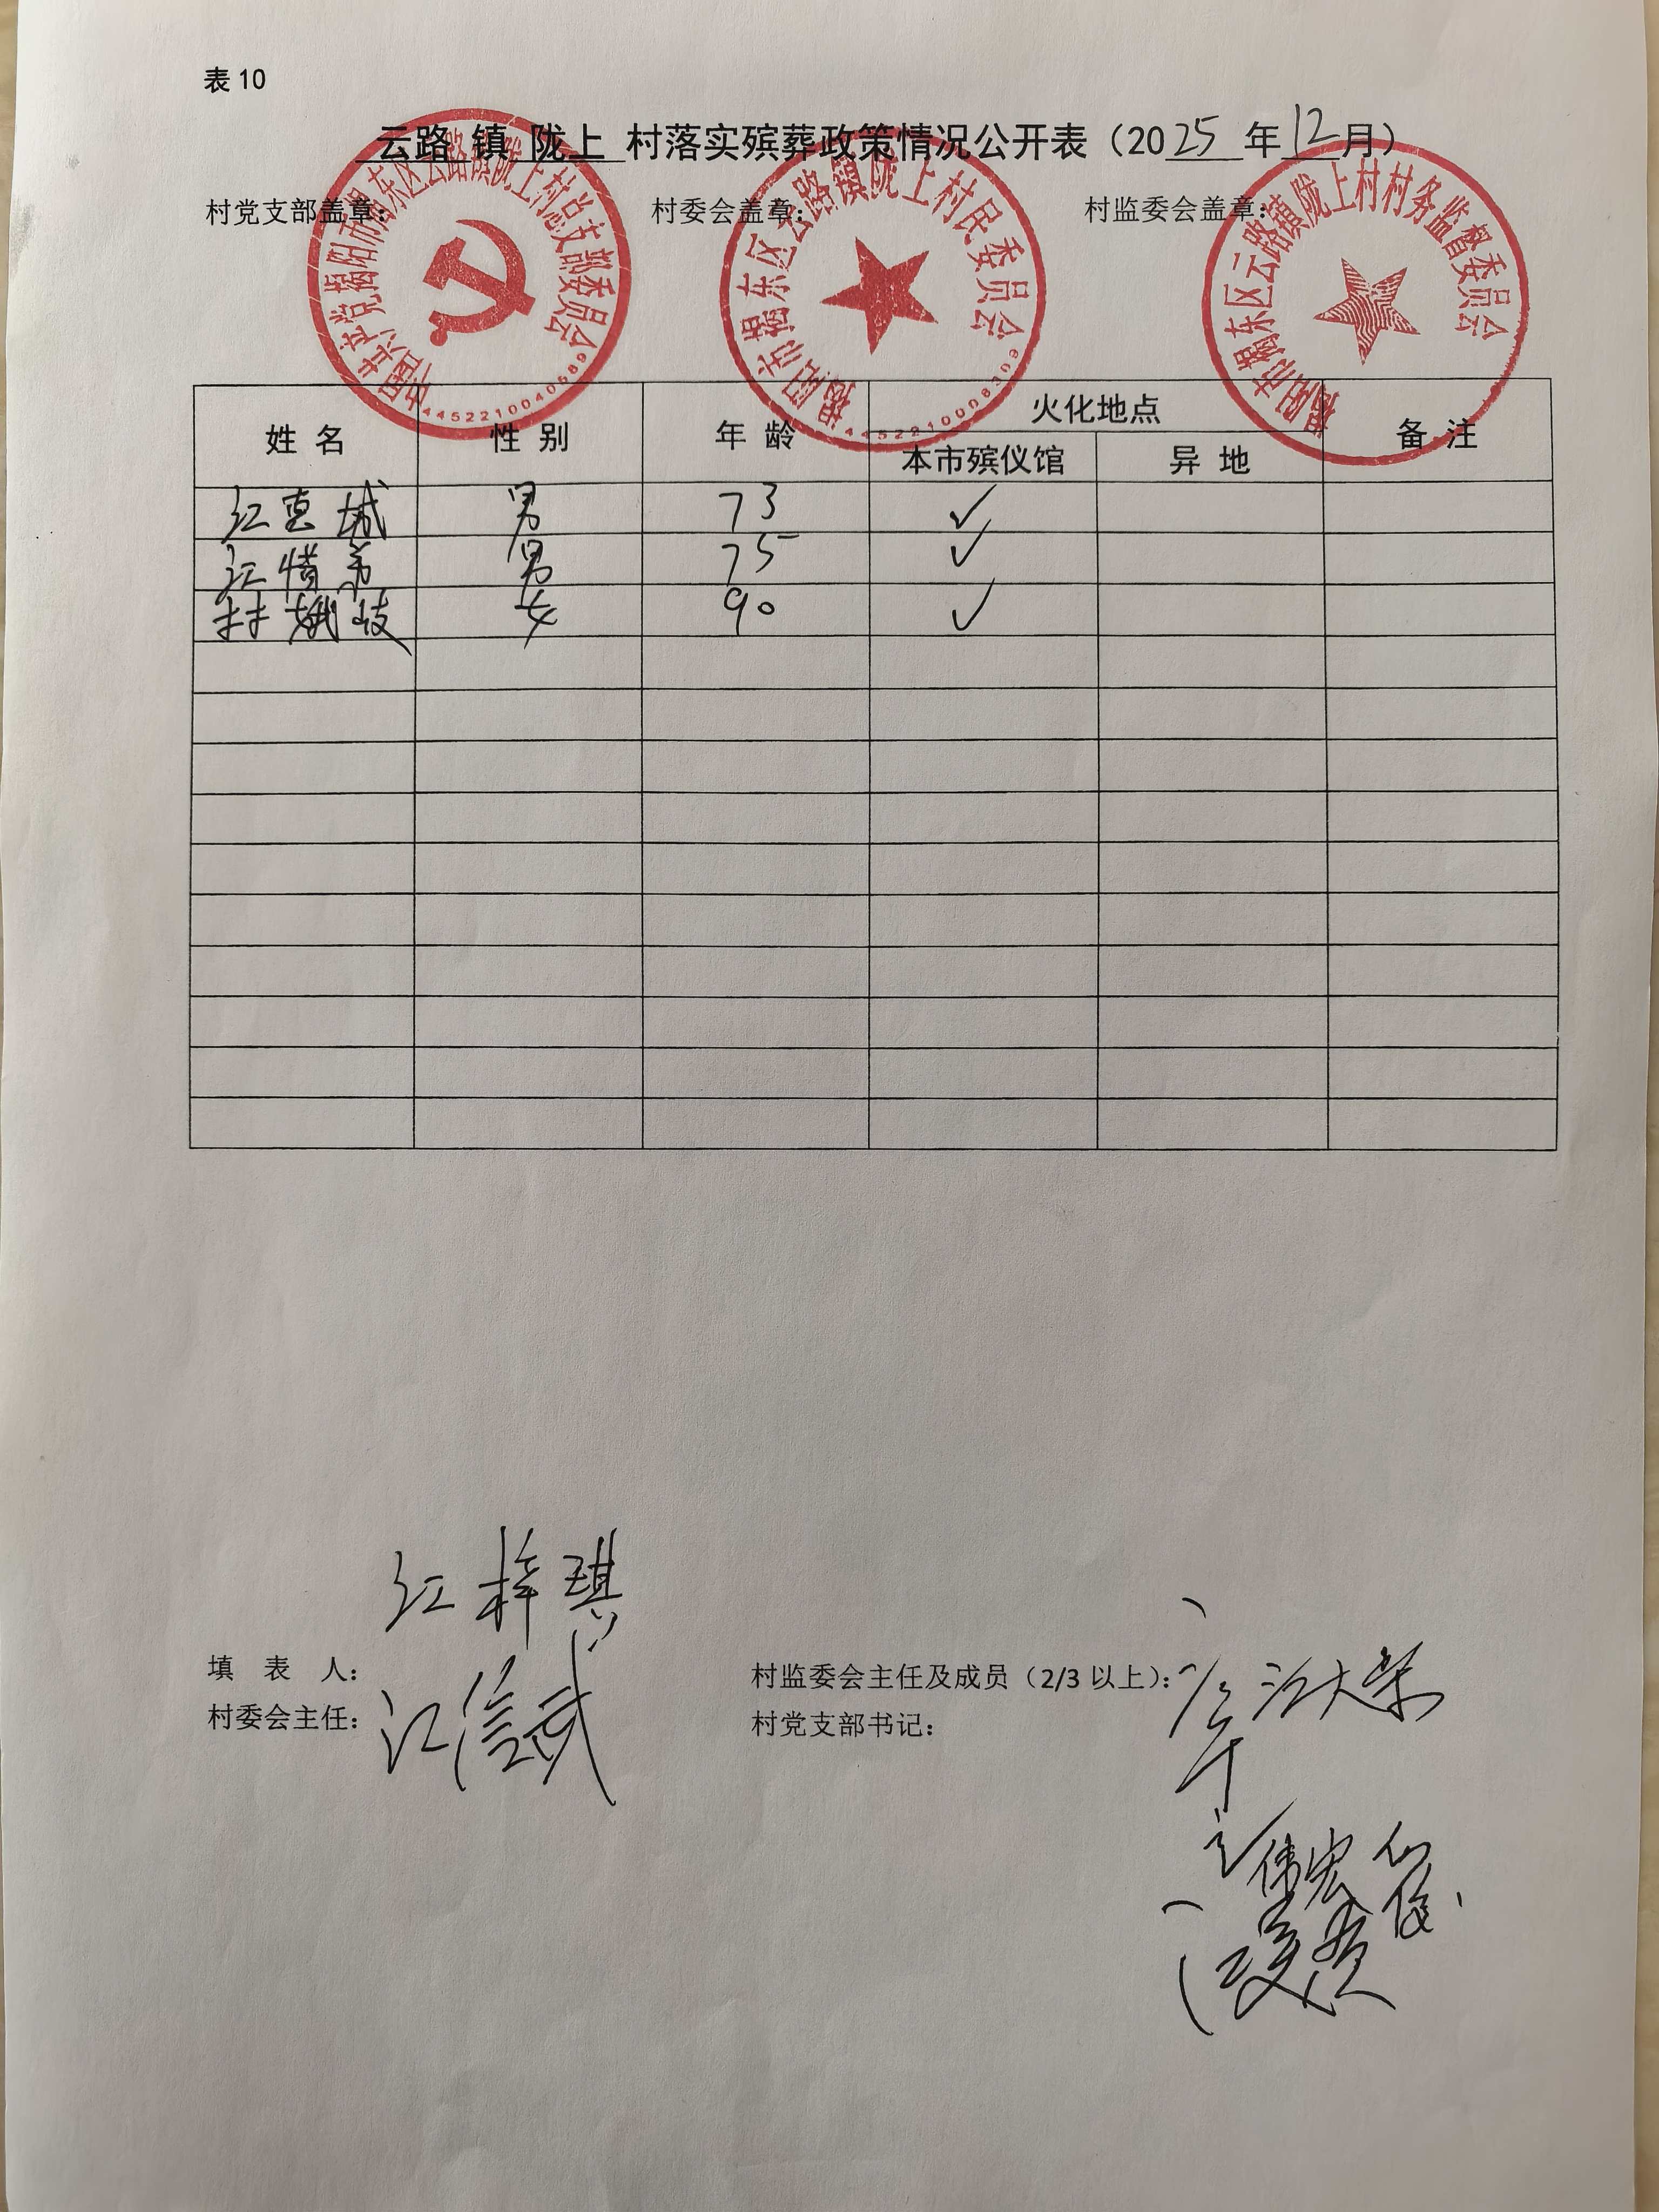 表 10
云路 镇 陇上 村落实殡葬政策情况公开表（2025年12月）
村党支部盖章： 村委会盖章： 村监委会盖章：
中国共产党揭阳市揭东区云路镇陇上村总支部委员会
揭阳市揭东区云路镇陇上村民委员会
揭阳市揭东区云路镇陇上村村务监督委员会
姓 名 性 别 年 龄 火化地点 备 注
本市殡仪馆 异 地
江 城 男 73 ✓
江惜弟 男 75 ✓
林娥 女 90 ✓
江梓琪
填 表 人： 村监委会主任及成员（2/3 以上）： 江大荣
村委会主任： 江信武 村党支部书记：
伟宏